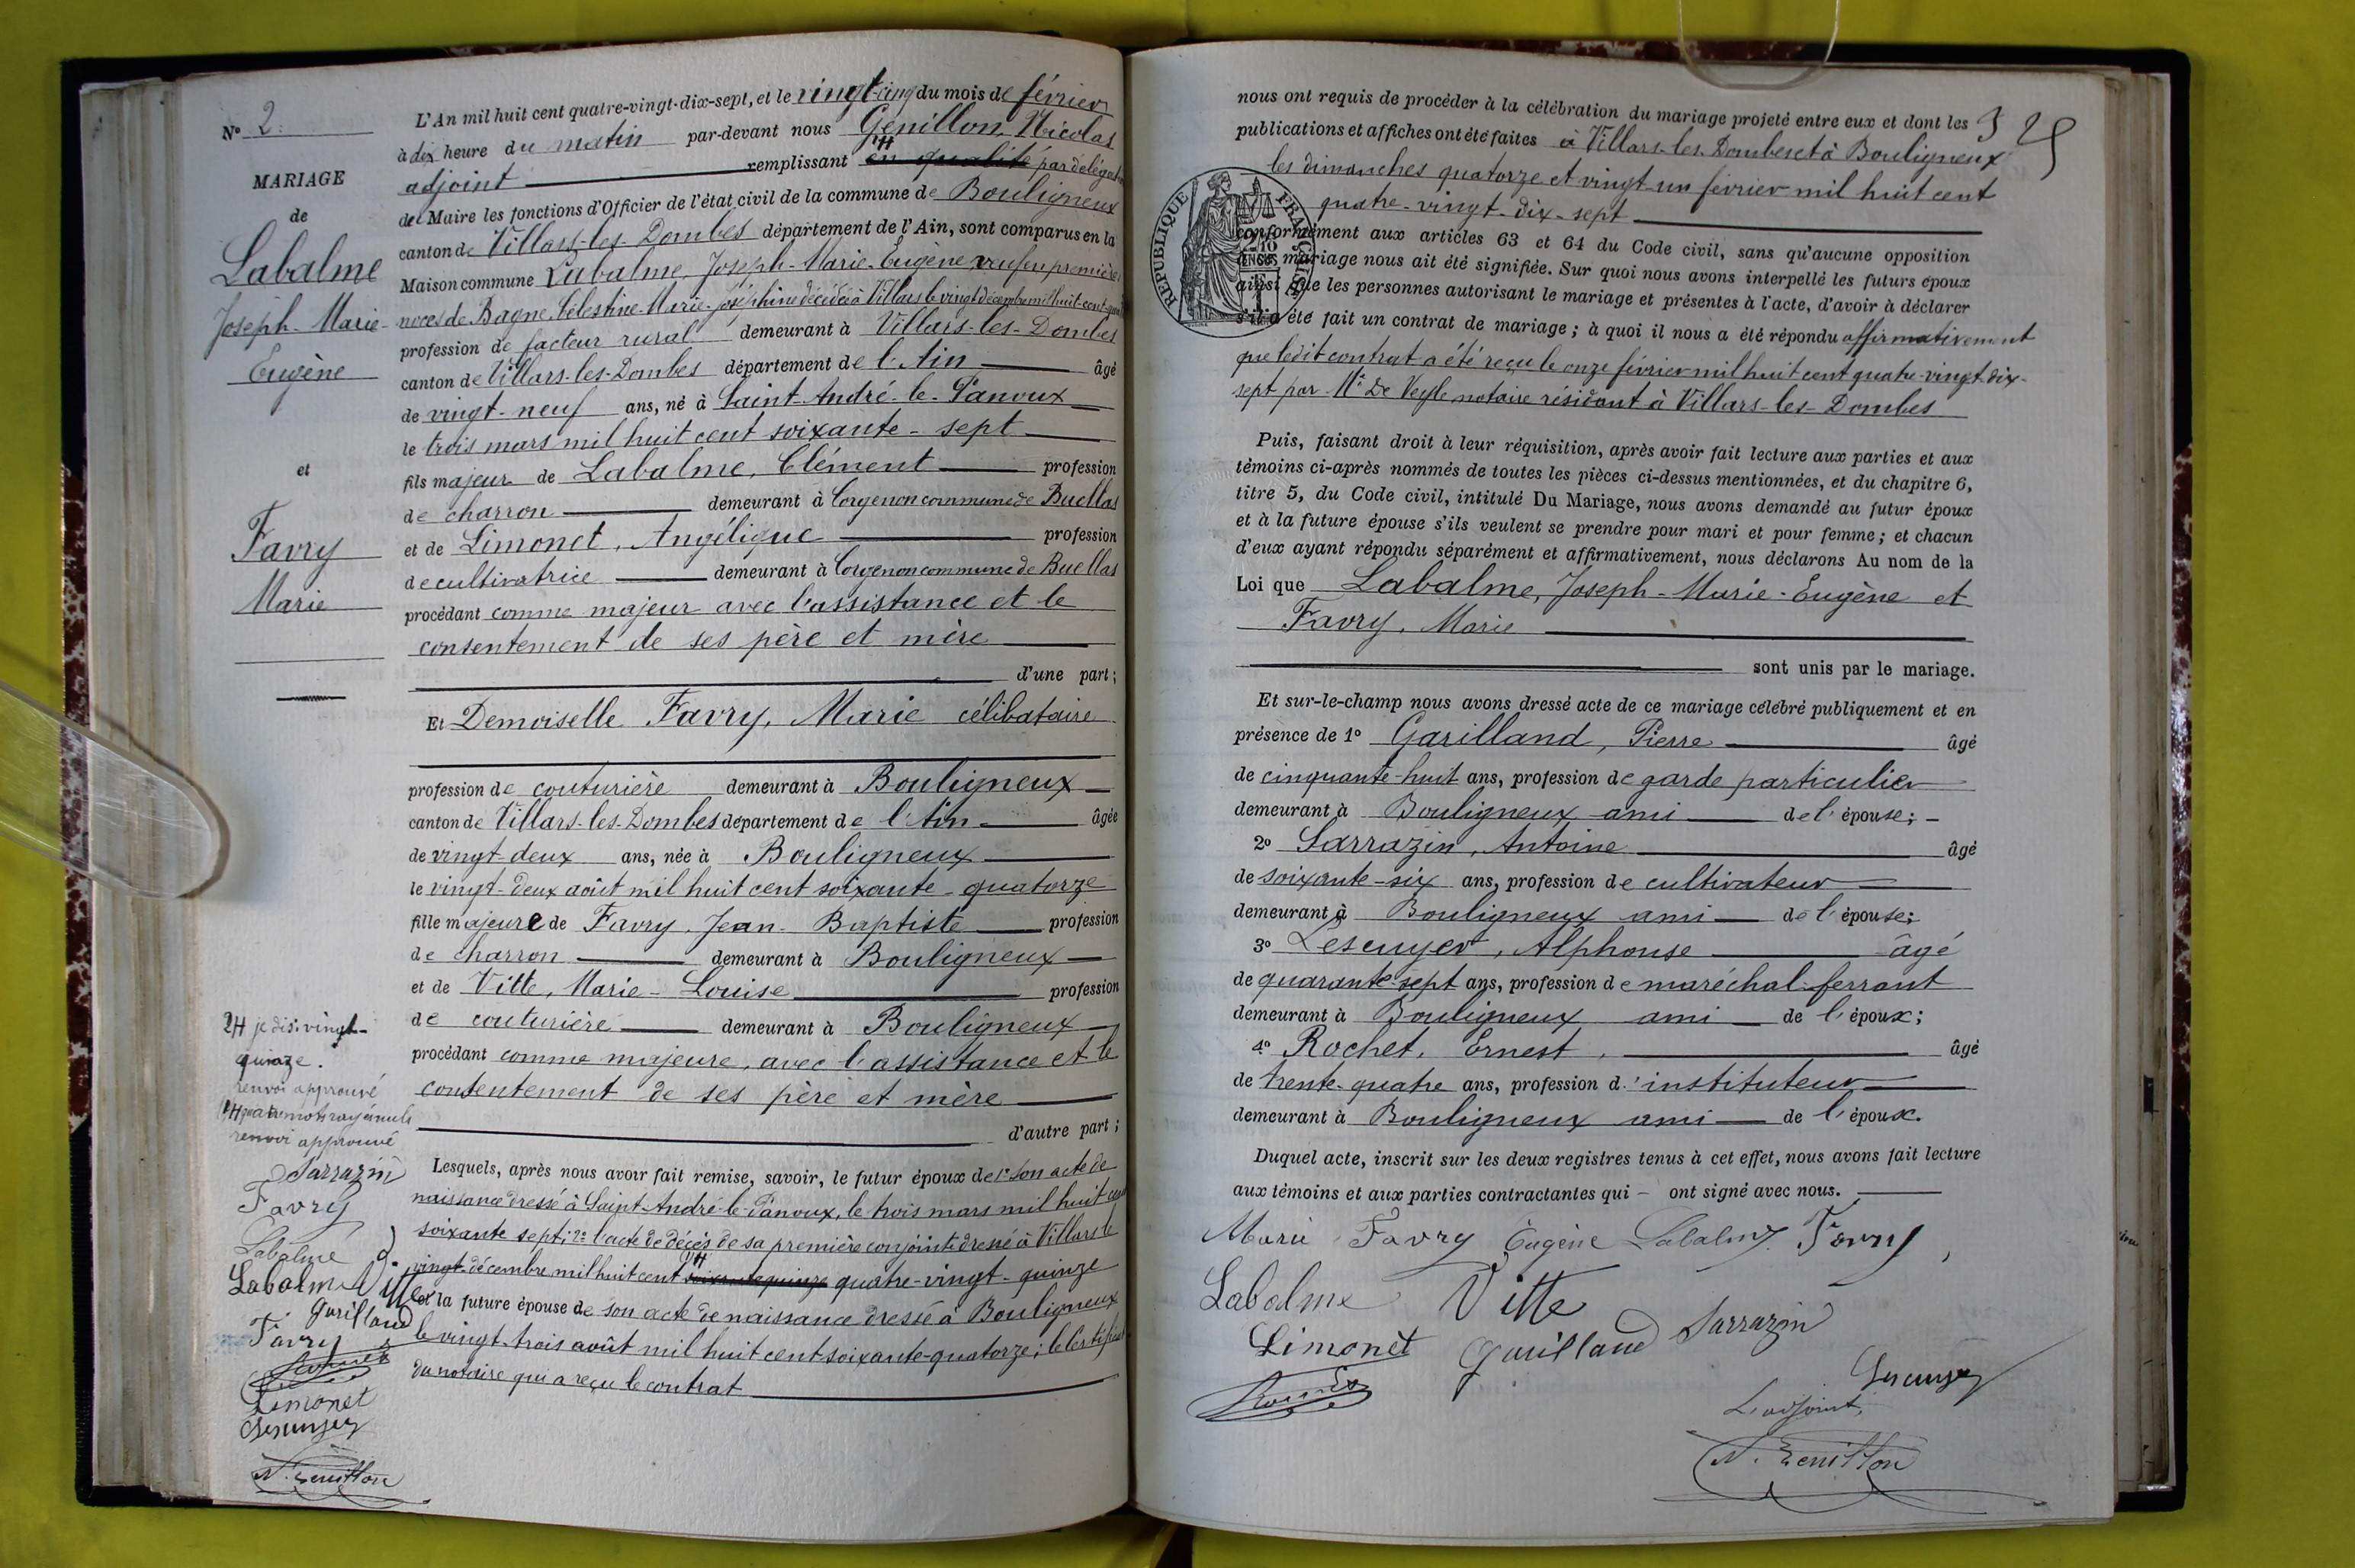 N° 2
MARIAGE
de
Labalme
Joseph-Marie-
Eugène
et
Favry
Marie
L'An mil huit cent quatre-vingt-dix-sept, et le vingt-cinq du mois de février
à dix heure du matin par-devant nous Genillon, Nicolas
adjoint remplissant en qualité par délégation
de Maire les fonctions d'Officier de l'état civil de la commune de Bouligneux
canton de Villars-les-Dombes département de l'Ain, sont comparus en la
Maison commune Labalme, Joseph-Marie-Eugène veuf en premières
noces de Bagne, Célestine-Marie-Joséphine décédée à Villars le vingt décembre mil huit-cent-
profession de facteur rural demeurant à Villars-les-Dombes
canton de Villars-les-Dombes département de l'Ain âgé
de vingt-neuf ans, né à Saint-André-le-Panoux
le trois mars mil huit cent soixante-sept
fils majeur de Labalme, Clément profession
de charron demeurant à Corgenon commune de Buellas
et de Limonet, Angélique profession
de cultivatrice demeurant à Corgenon commune de Buellas
procédant comme majeur avec l'assistance et le
consentement de ses père et mère
d'une part;
Et Demoiselle Favry, Marie célibataire
profession de couturière demeurant à Bouligneux
canton de Villars-les-Dombes département de l'Ain âgée
de vingt-deux ans, née à Bouligneux
le vingt-deux août mil huit cent soixante-quatorze
fille majeure de Favry, Jean-Baptiste profession
de charron demeurant à Bouligneux
et de Vitte, Marie-Louise profession
de couturière demeurant à Bouligneux
procédant comme majeure, avec l'assistance et le
consentement de ses père et mère
d'autre part;
Lesquels, après nous avoir fait remise, savoir, le futur époux de 1° son acte de
naissance dressé à Saint-André-le-Panoux, le trois mars mil huit cent
soixante sept; 2° l'acte de décès de sa première conjointe dressé à Villars le
vingt décembre mil huit cent soixante quinze quatre-vingt-quinze
et la future épouse de son acte de naissance dressé à Bouligneux
le vingt-trois août mil huit cent soixante-quatorze; le certificat
du notaire qui a reçu le contrat
je dis: vingt-
quinze.
renvoi approuvé
mots rayés nuls
renvoi approuvé
Sarrazin
Favry
Labalme
Labalme Vitte
Garilland
Favry
Limonet
Lescuyer
N. Genillon
3 25
nous ont requis de procéder à la célébration du mariage projeté entre eux et dont les
publications et affiches ont été faites à Villars-les-Dombes et à Bouligneux
les dimanches quatorze et vingt-un février mil huit cent
quatre-vingt-dix-sept
RÉPUBLIQUE FRANÇAISE
conformément aux articles 63 et 64 du Code civil, sans qu'aucune opposition
à ce mariage nous ait été signifiée. Sur quoi nous avons interpellé les futurs époux
ainsi que les personnes autorisant le mariage et présentes à l'acte, d'avoir à déclarer
s'il a été fait un contrat de mariage; à quoi il nous a été répondu affirmativement
que ledit contrat a été reçu le onze février mil huit cent quatre-vingt-dix-
sept par Me De Veyle notaire résidant à Villars-les-Dombes
Puis, faisant droit à leur réquisition, après avoir fait lecture aux parties et aux
témoins ci-après nommés de toutes les pièces ci-dessus mentionnées, et du chapitre 6,
titre 5, du Code civil, intitulé Du Mariage, nous avons demandé au futur époux
et à la future épouse s'ils veulent se prendre pour mari et pour femme; et chacun
d'eux ayant répondu séparément et affirmativement, nous déclarons Au nom de la
Loi que Labalme, Joseph-Marie-Eugène et
Favry, Marie
sont unis par le mariage.
Et sur-le-champ nous avons dressé acte de ce mariage célébré publiquement et en
présence de 1° Garilland, Pierre âgé
de cinquante-huit ans, profession de garde particulier
demeurant à Bouligneux ami de l'épouse;
2° Sarrazin, Antoine âgé
de soixante-six ans, profession de cultivateur
demeurant à Bouligneux ami de l'épouse;
3° Lescuyer, Alphonse âgé
de quarante-sept ans, profession de maréchal-ferrant
demeurant à Bouligneux ami de l'époux;
4° Rochet, Ernest, âgé
de trente-quatre ans, profession d'instituteur
demeurant à Bouligneux ami de l'époux.
Duquel acte, inscrit sur les deux registres tenus à cet effet, nous avons fait lecture
aux témoins et aux parties contractantes qui – ont signé avec nous.
Marie Favry Eugène Labalme Favry
Labalme Vitte
Limonet Garilland Sarrazin
Lescuyer
L'adjoint,
N. Genillon